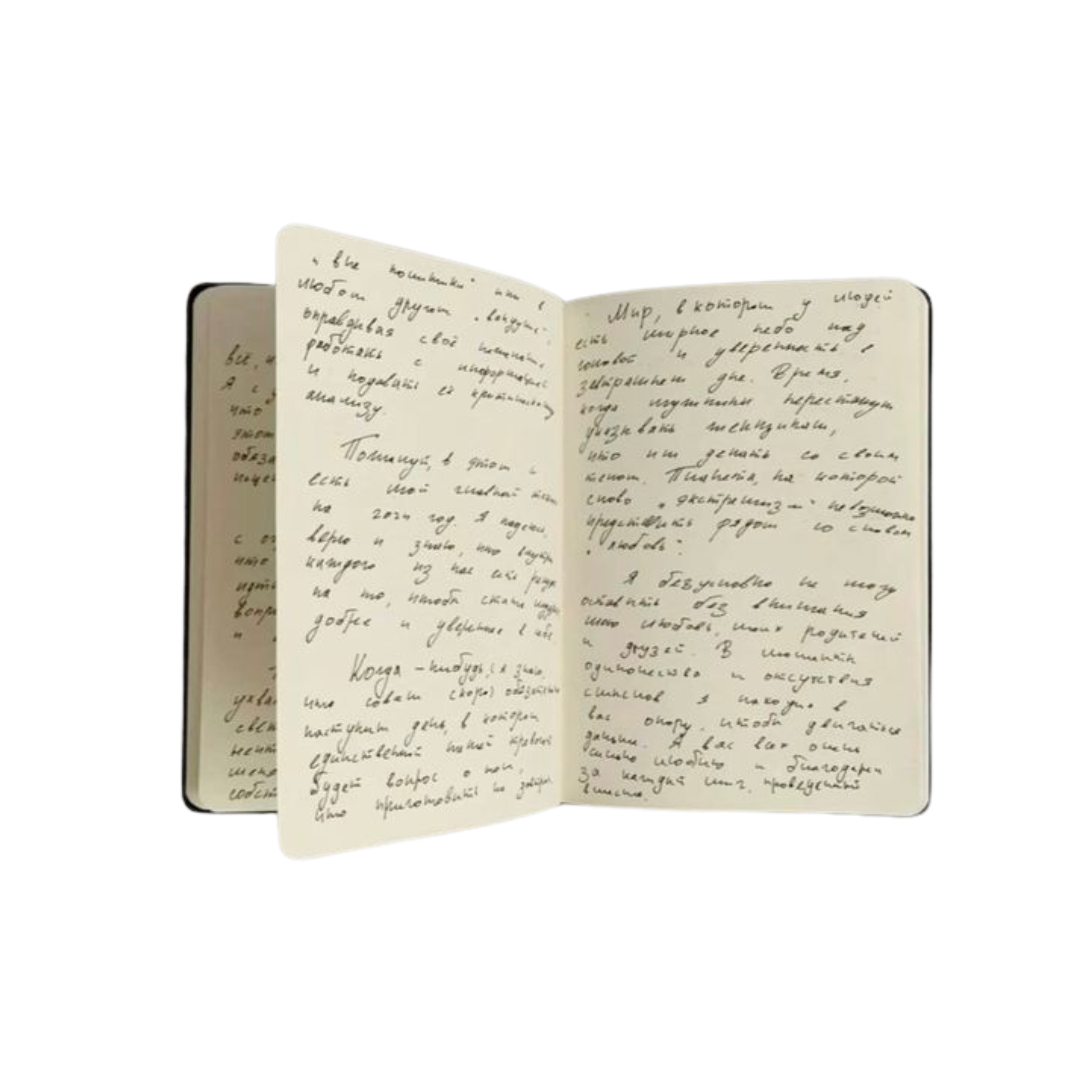 все, и
Я с д
что
этот
обяза
ищен
с ог
что
идти
вопр
и
ухва
свет
мент
мен
собст
„вне политики“ или в
любом другом „вакууме“,
оправдывая своё нежелание
работать с информацией
и подавать её критическому
анализу.
Пожалуй, в этом и
есть мой главный
на 2024 год. Я надеюсь,
верю и знаю, что внутри
каждого из нас есть ресурс
на то, чтобы стать
добрее и увереннее в себе.
Когда-нибудь, (я знаю,
что совсем скоро) обязательно
наступит день, в котором
единственной нашей тревогой
будет вопрос о том,
что приготовить на завтрак.
Мир, в котором у людей
есть мирное небо над
головой и уверенность в
завтрашнем дне. Время,
когда мужчины перестанут
указывать женщинам,
что им делать со своим
телом. Планета, на которой
слово „экстремизм“ невозможно
представить рядом со словом
„любовь“.
Я безусловно не могу
оставить без внимания
мою любовь, моих родителей
и друзей. В моменты
одиночества и отсутствия
смыслов я находил в
вас опору, чтобы двигаться
дальше. Я вас всех очень
сильно люблю и благодарен
за каждый миг, проведенный
вместе.